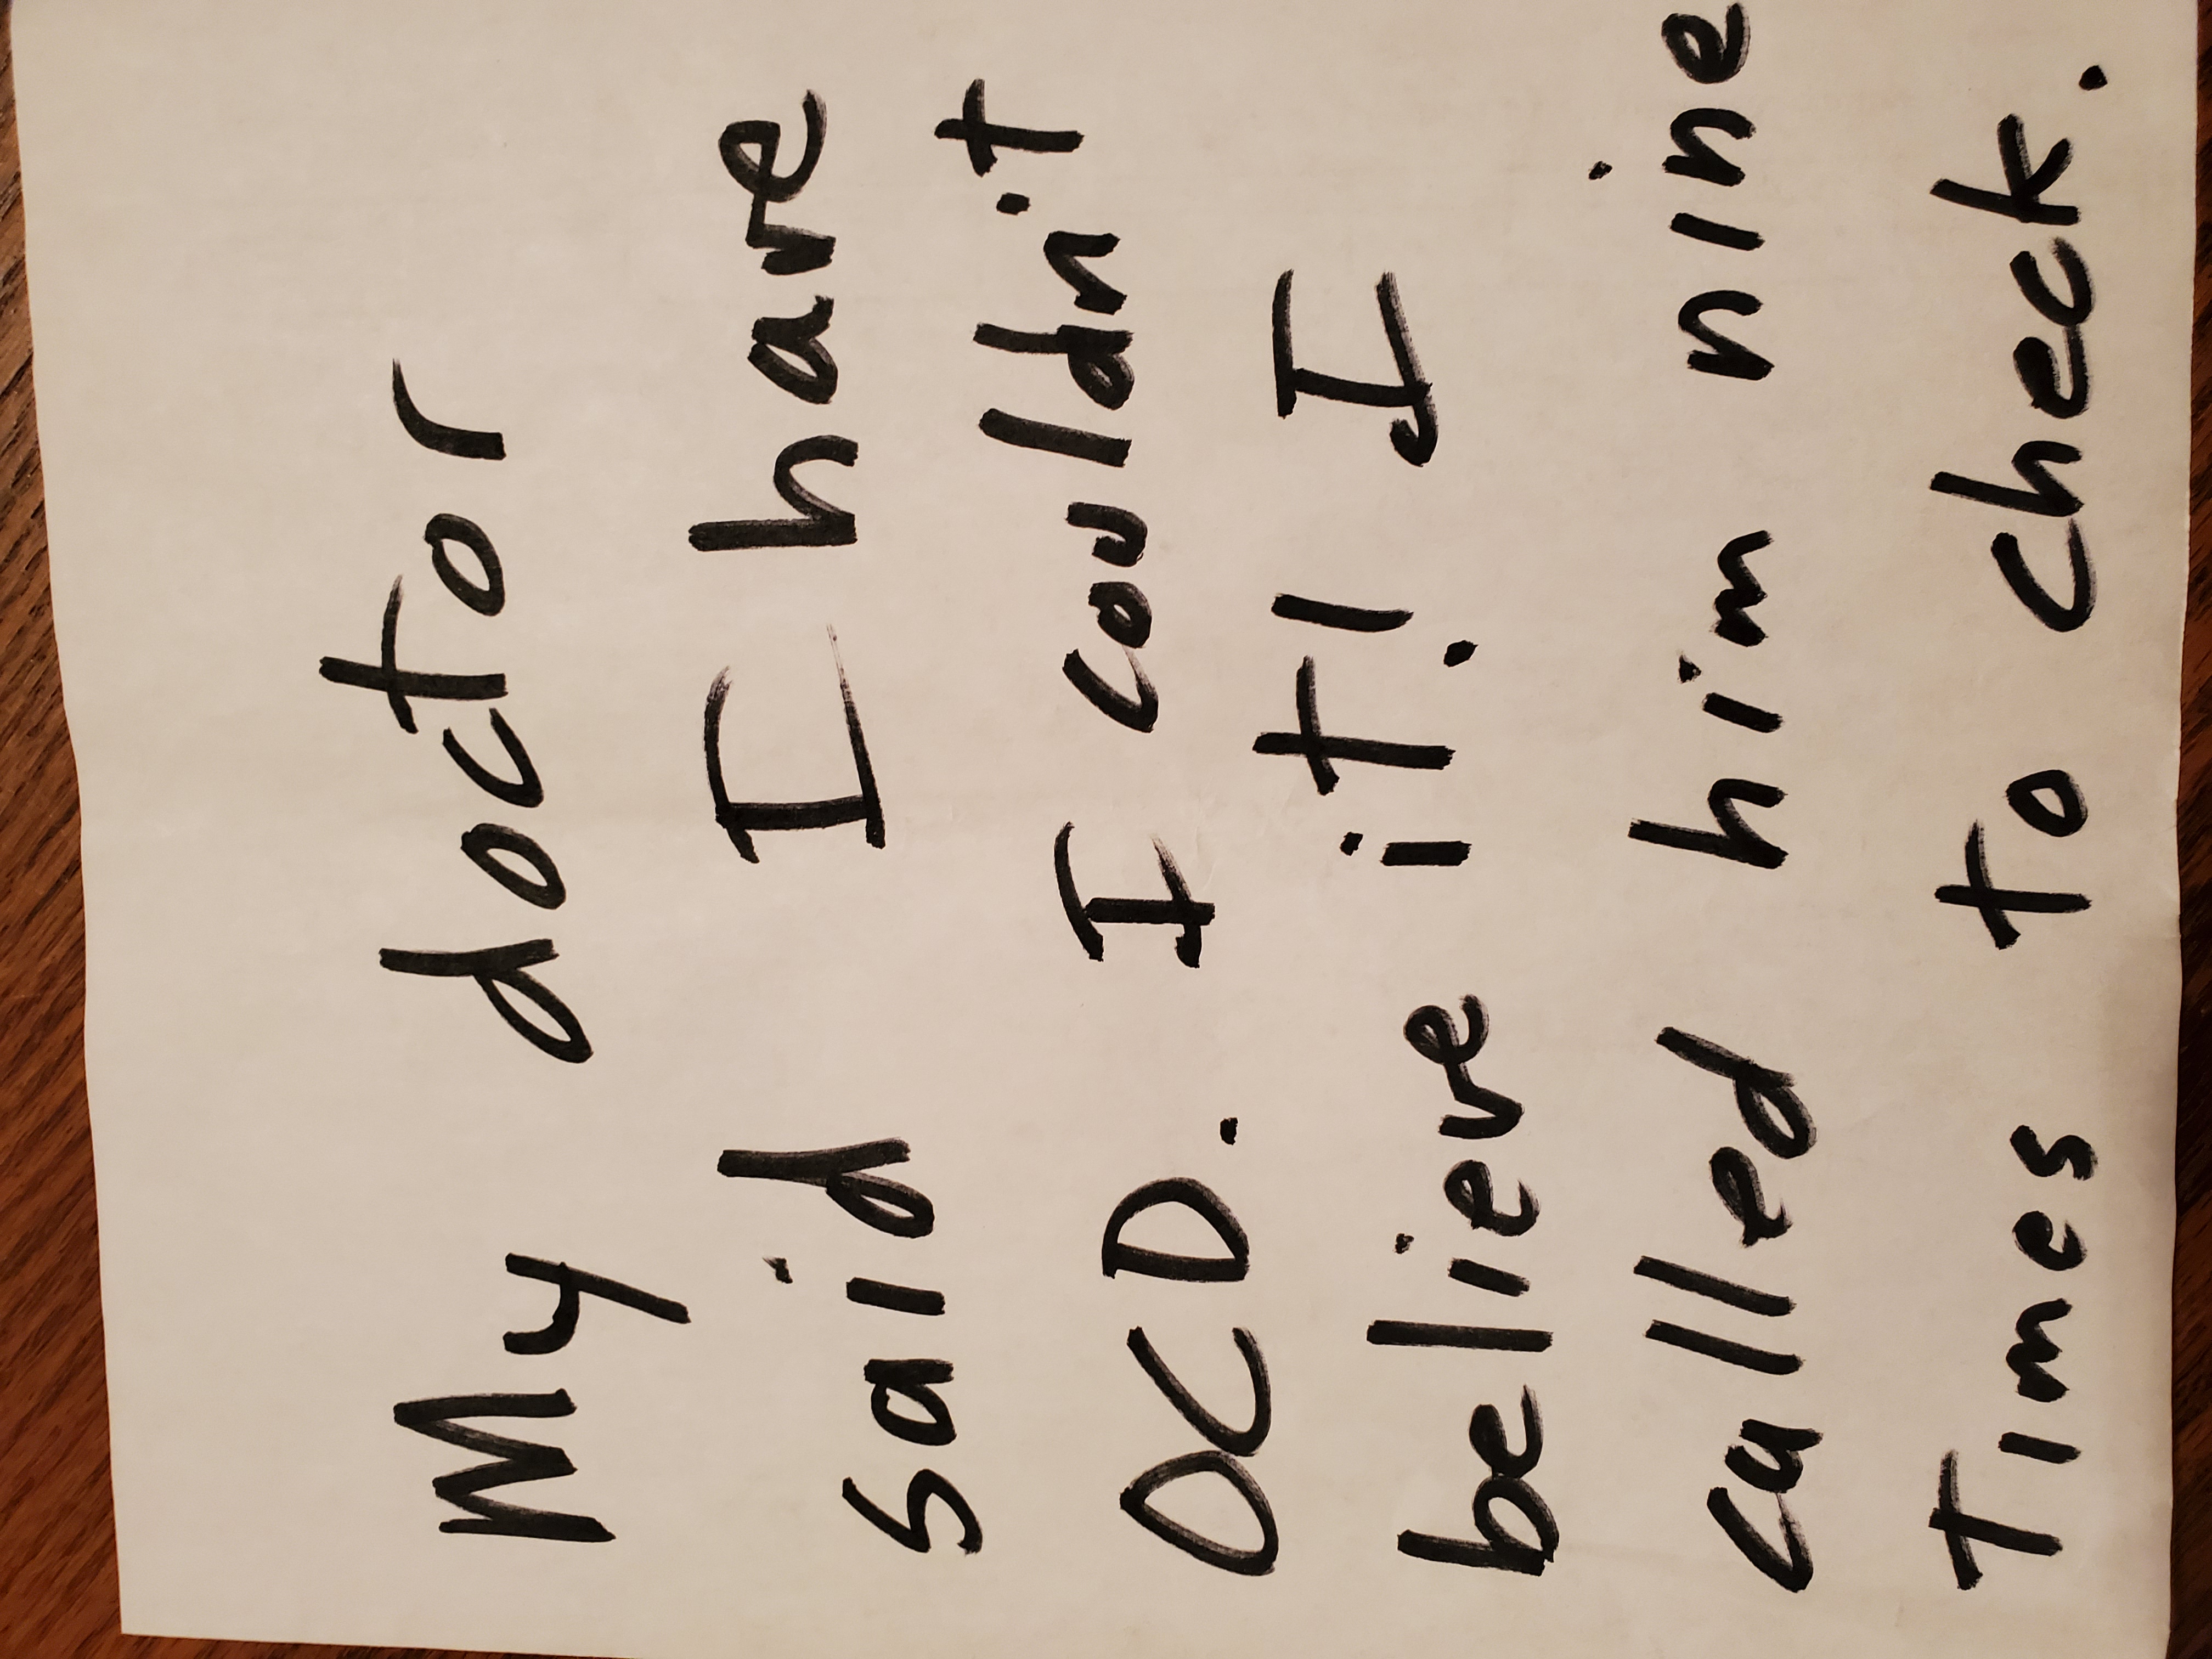 My doctor
said I have
OCD. I couldn't
believe it! I
called him nine
Times to check.